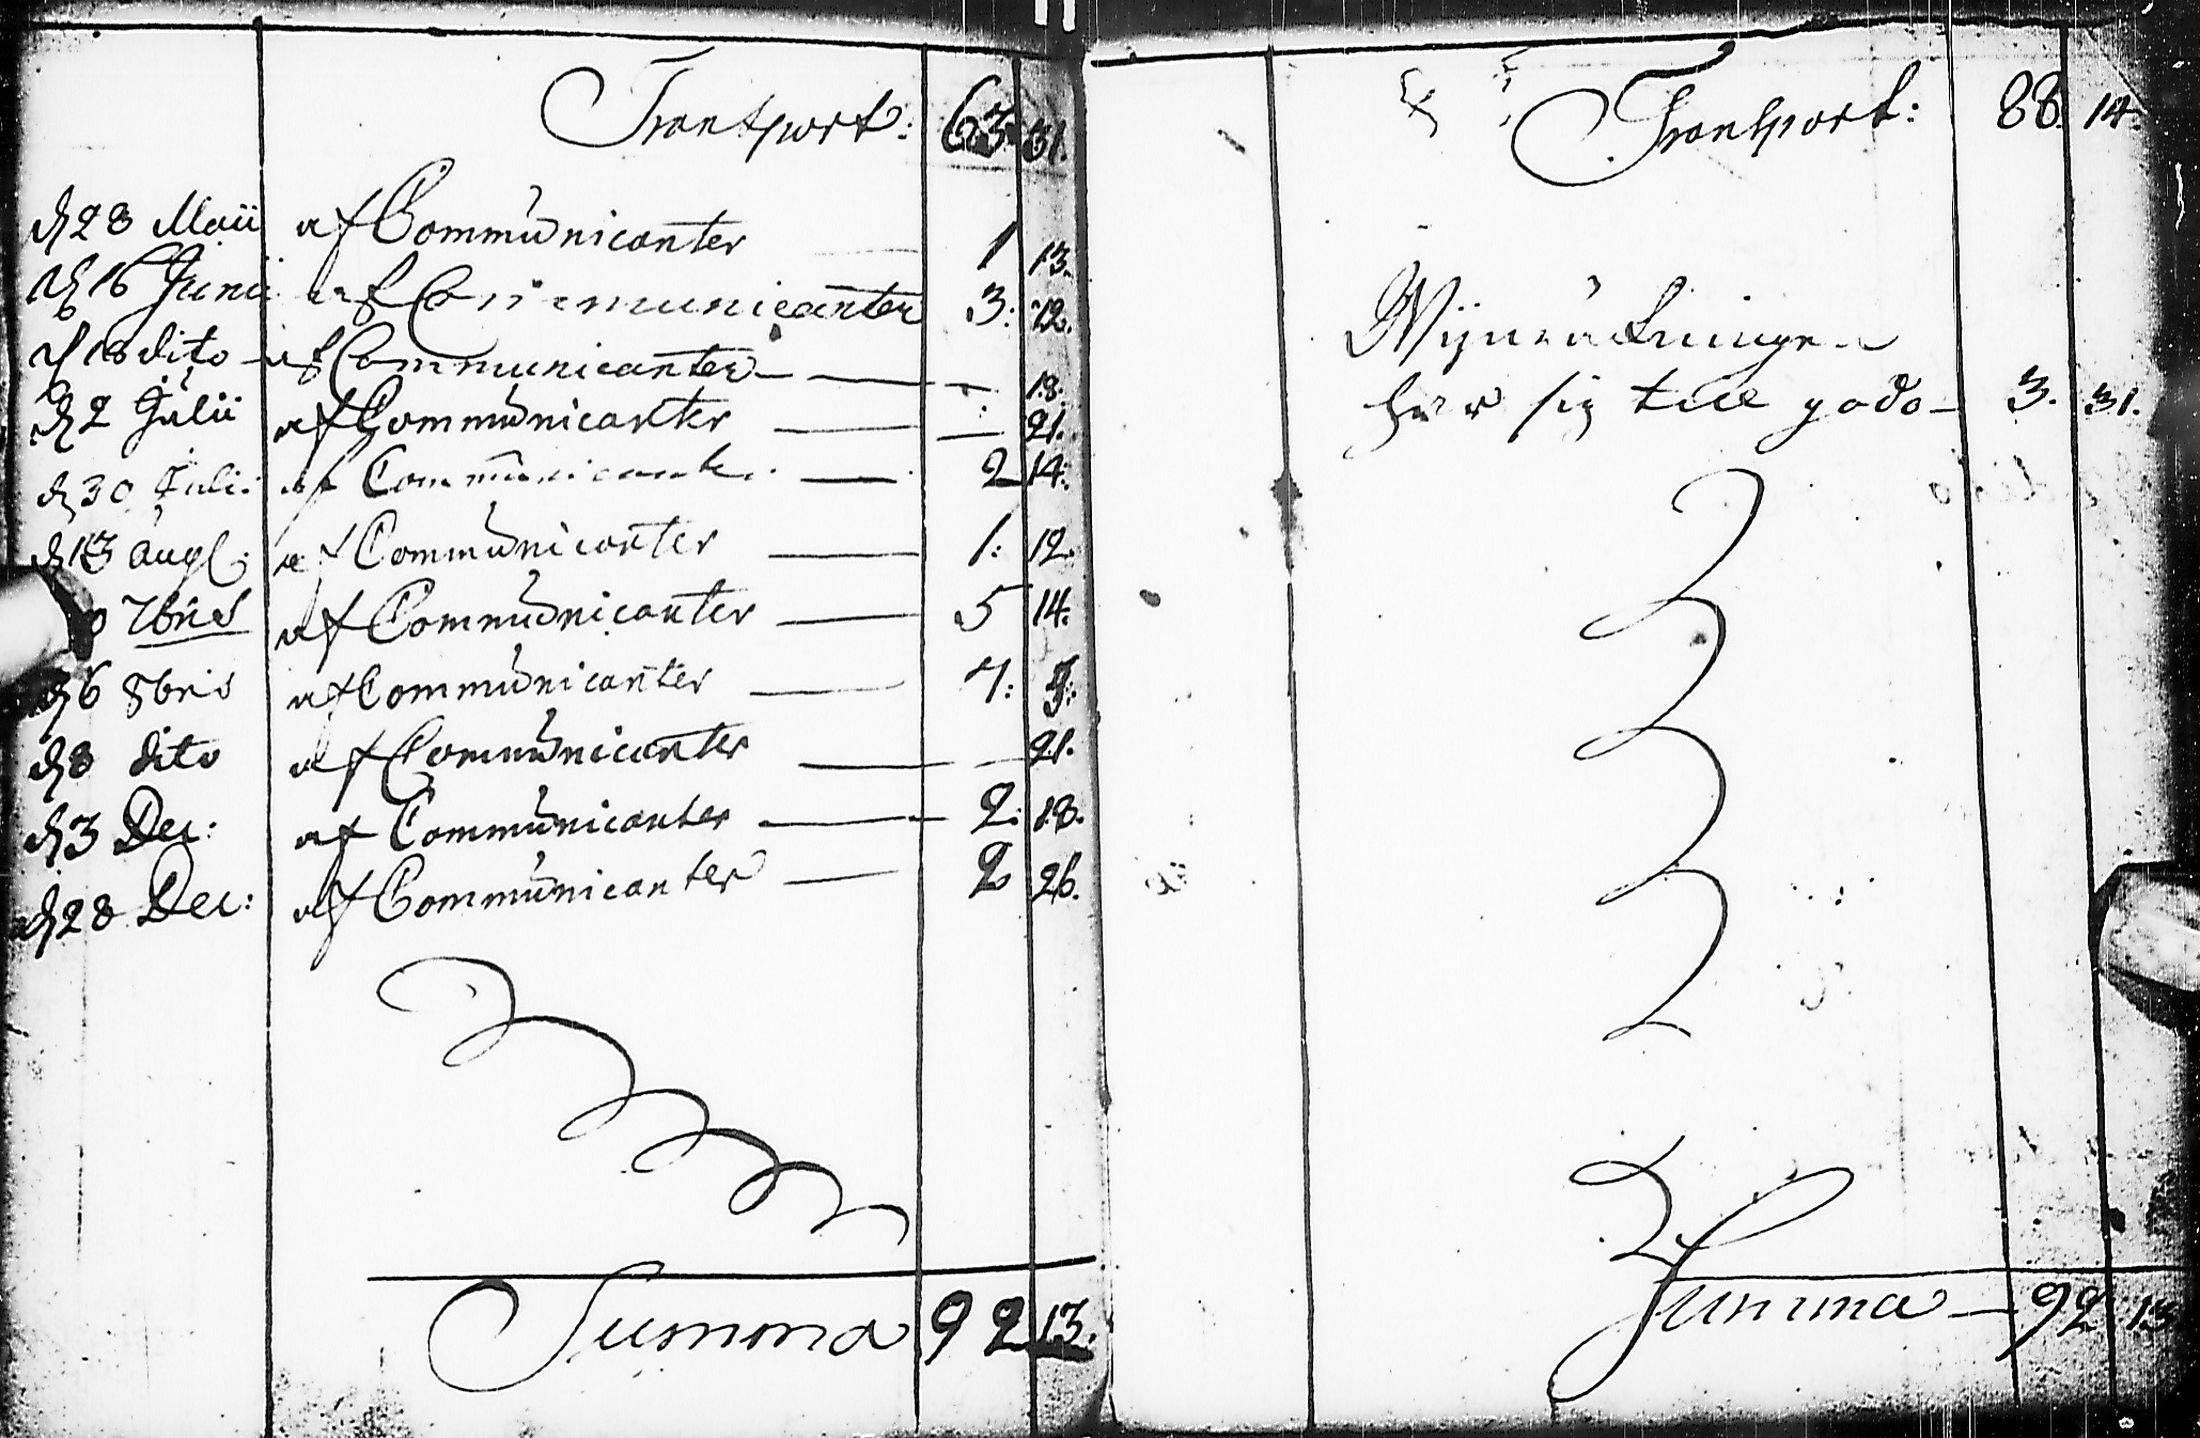 Transport: 63. 31.
d 28 Maii af Communicanter 1 13.
d 16 Junii af Communicanter 3: 12.
d 18 dito af Communicanter — 18.
d 2 Julii af Communicanter — 21.
d 30 Julii af Communicanter — 2 14:
d 13 Aug: af Communicanter — 1: 12.
7bris af Communicanter — 5 14.
d 6 8bris af Communicanter — 7:
d 8 dito af Communicanter — 21.
d 3 Dec: af Communicanter — 2: 18.
d 28 Dec: af Communicanter — 2 26.
Summa 92 13.
Transport: 88. 14.
Wijnräkningen
har sig till godo — 3. 31.
Summa — 92 13